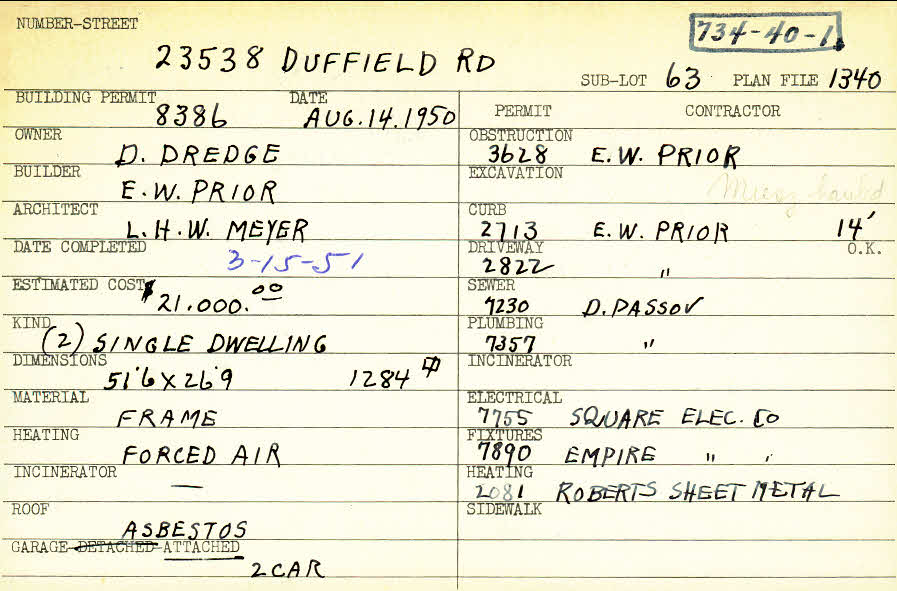 NUMBER-STREET
734-40-1
23538 DUFFIELD RD
SUB-LOT 63 PLAN FILE 1340
BUILDING PERMIT DATE
8386 AUG.14.1950
OWNER
D. DREDGE
BUILDER
E.W. PRIOR
ARCHITECT
L.H.W. MEYER
DATE COMPLETED
3-15-51
ESTIMATED COST
$21.000.00
KIND
(2) SINGLE DWELLING
DIMENSIONS
51'6 X 26'9 1284
MATERIAL
FRAME
HEATING
FORCED AIR
INCINERATOR
—
ROOF
ASBESTOS
GARAGE-DETACHED-ATTACHED
2 CAR
PERMIT CONTRACTOR
OBSTRUCTION
3628 E.W. PRIOR
EXCAVATION
CURB
2713 E.W. PRIOR 14'
DRIVEWAY O.K.
2822 "
SEWER
7230 D. PASSOV
PLUMBING
7357 "
INCINERATOR
ELECTRICAL
7755 SQUARE ELEC. CO
FIXTURES
7890 EMPIRE " "
HEATING
2081 ROBERTS SHEET METAL
SIDEWALK